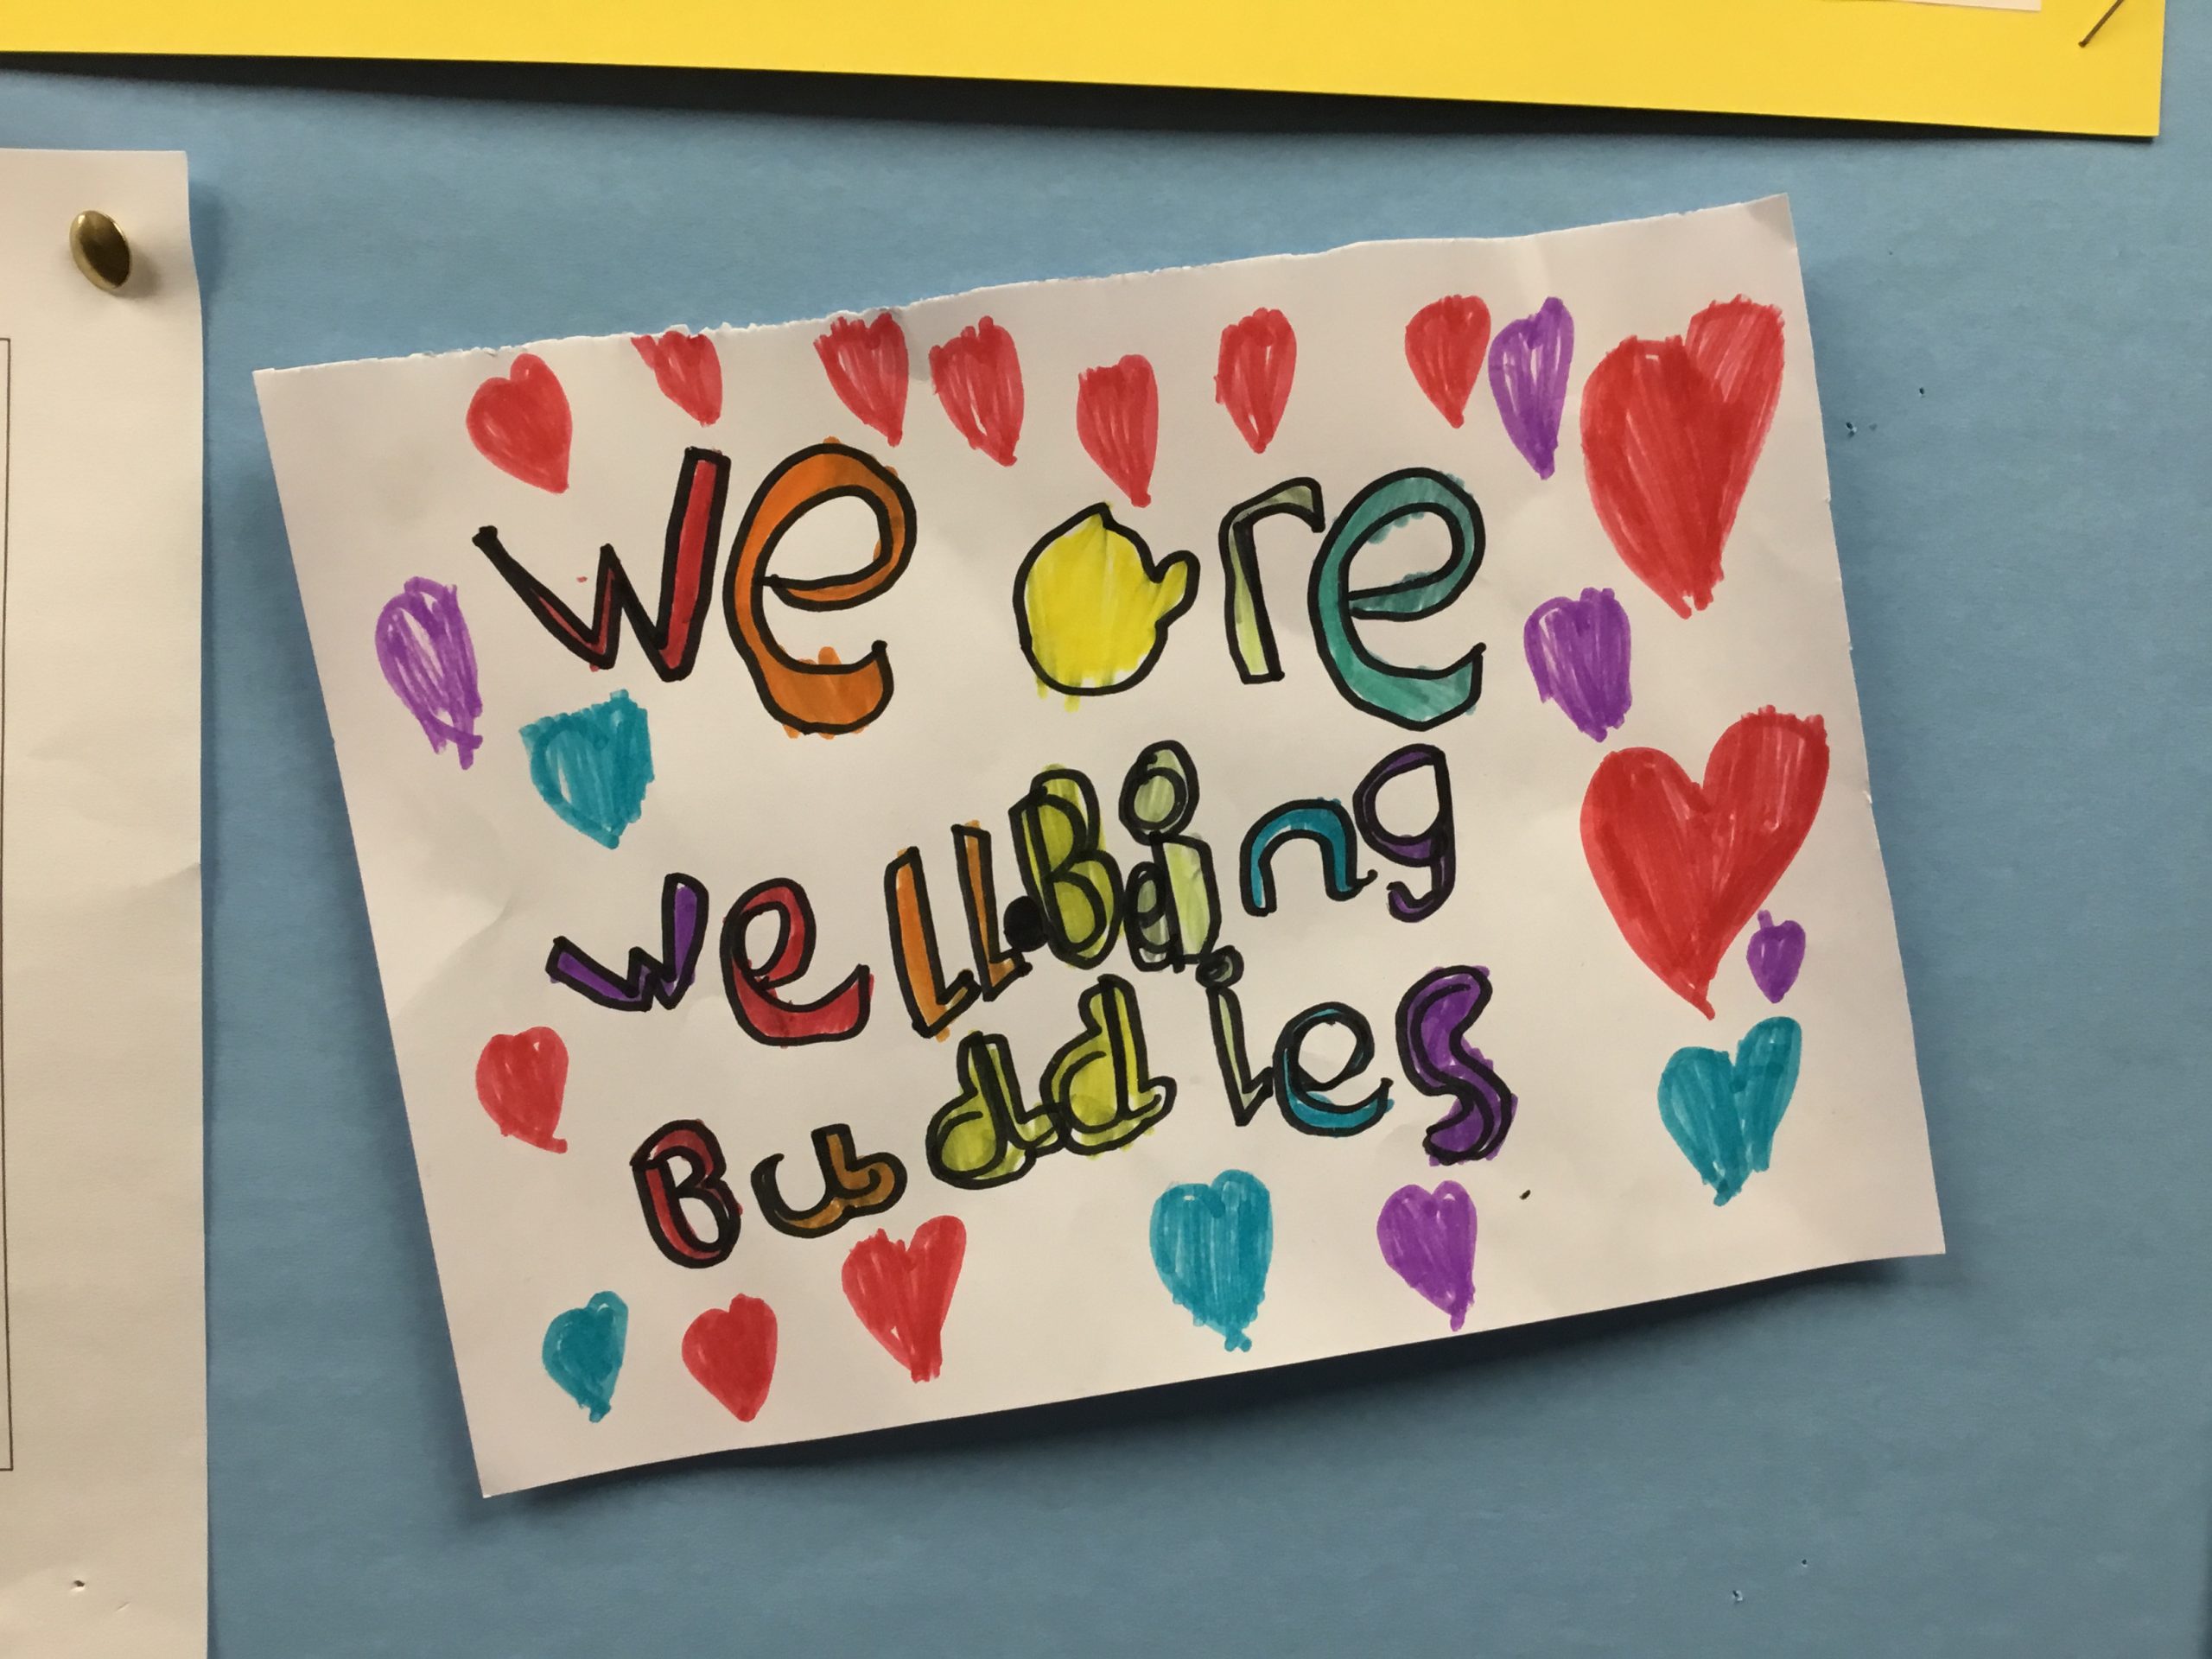 we are
weLL.Being
Buddies